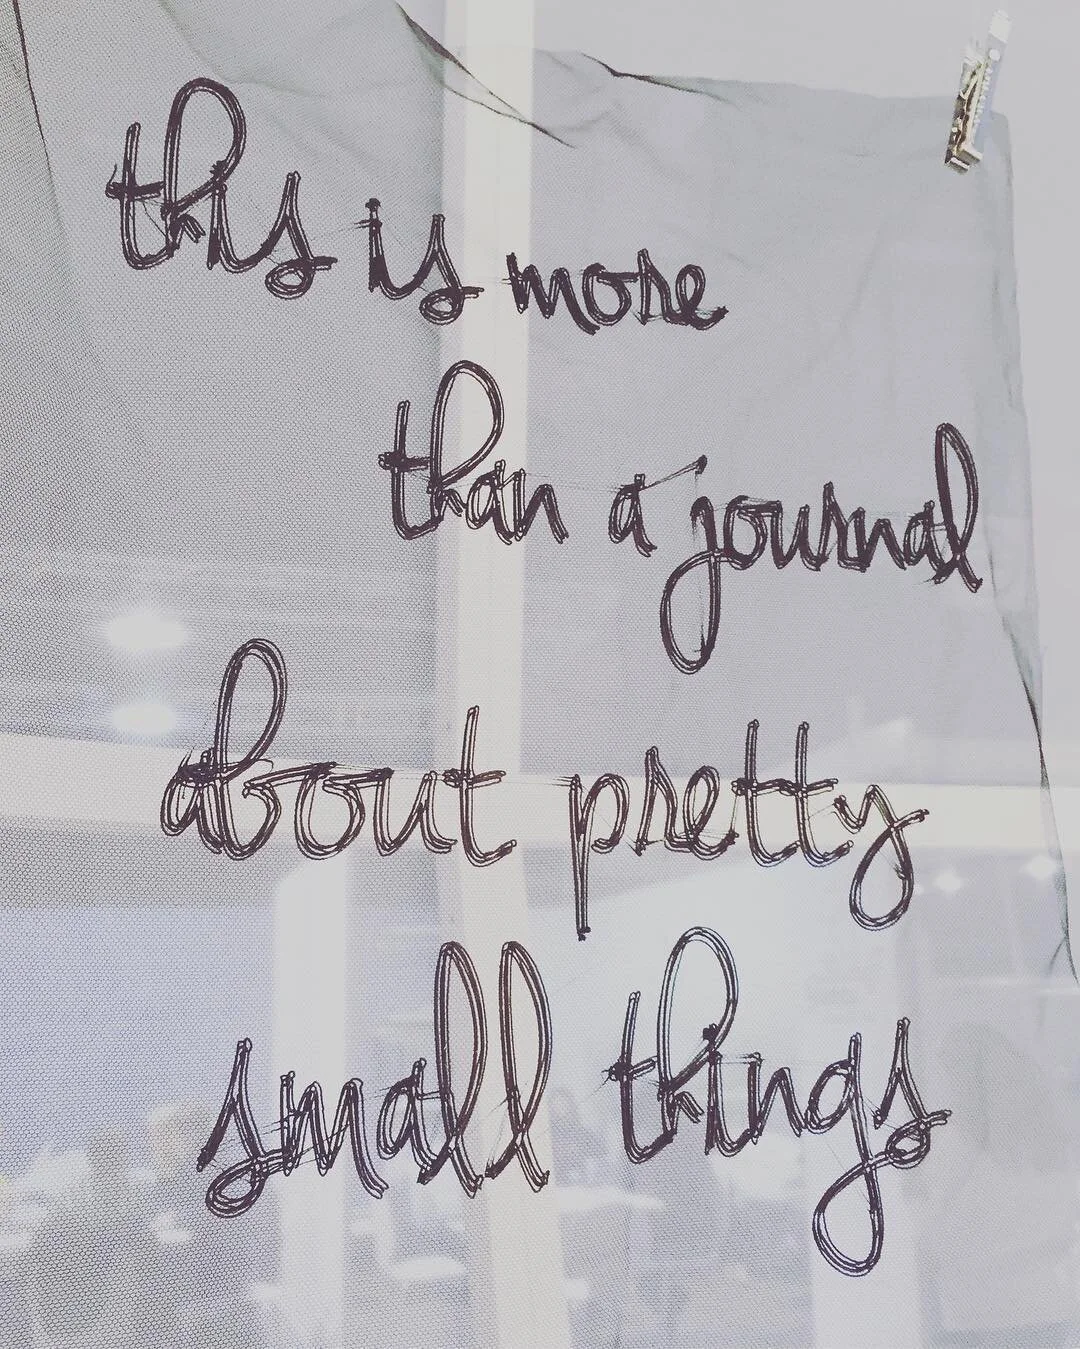 this is more
than a journal
about pretty
small things